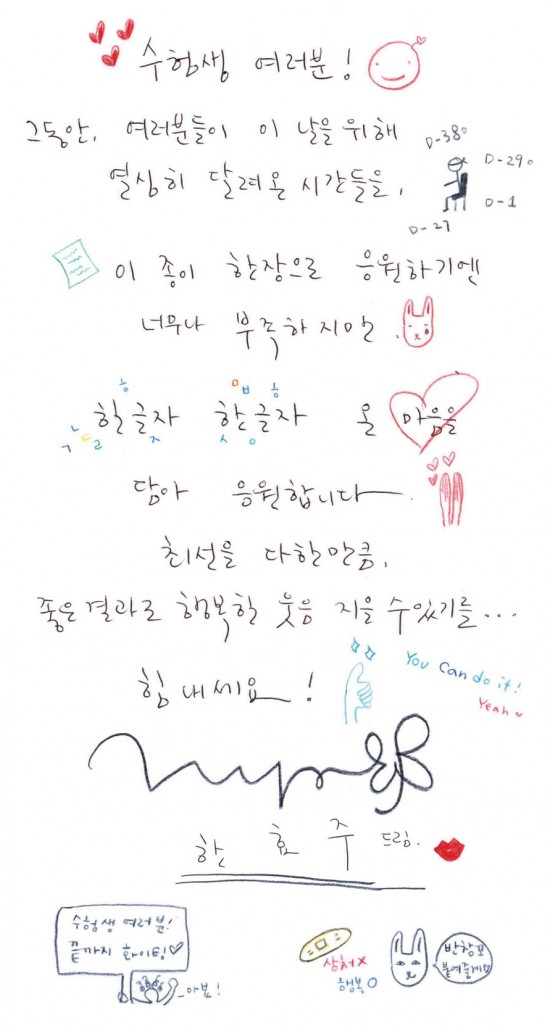 수험생 여러분!
그동안, 여러분들이 이 날을 위해
D-380
열심히 달려온 시간들을,
D-290
D-1
D-27
이 종이 한장으로 응원하기엔
너무나 부족하지만.
ㅎ ㅁㅂ ㅎ
한글자 한글자 온 마음을
ㄱㄴㄷㄹ ㅈ ㅅ ㅇ
담아 응원합니다.
최선을 다한만큼,
좋은 결과로 행복한 웃음 지을 수 있기를...
힘내세요!
You Can do it!
Yeah~
한효주 드림.
수험생 여러분!
끝까지 화이팅♡
아뵤!
상처X
행복O
반창꼬
붙여줄게요